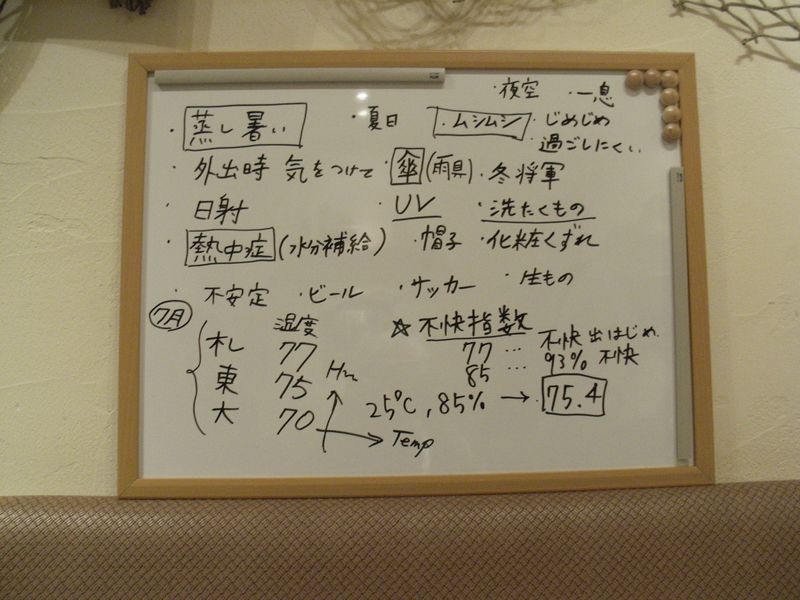 ・夜空 ・一息
・蒸し暑い ・夏日 ・ムシムシ ・じめじめ
・過ごしにくい
・外出時 気をつけて ・傘(雨具) ・冬将軍
・日射 ・UV ・洗たくもの
・熱中症(水分補給) ・帽子 ・化粧くずれ
・不安定 ・ビール ・サッカー ・生もの
7月 湿度 ☆ 不快指数
札 77 77 … 不快出はじめ
東 75 Hm 85 … 93% 不快
大 70 25℃, 85% → 75.4
Temp